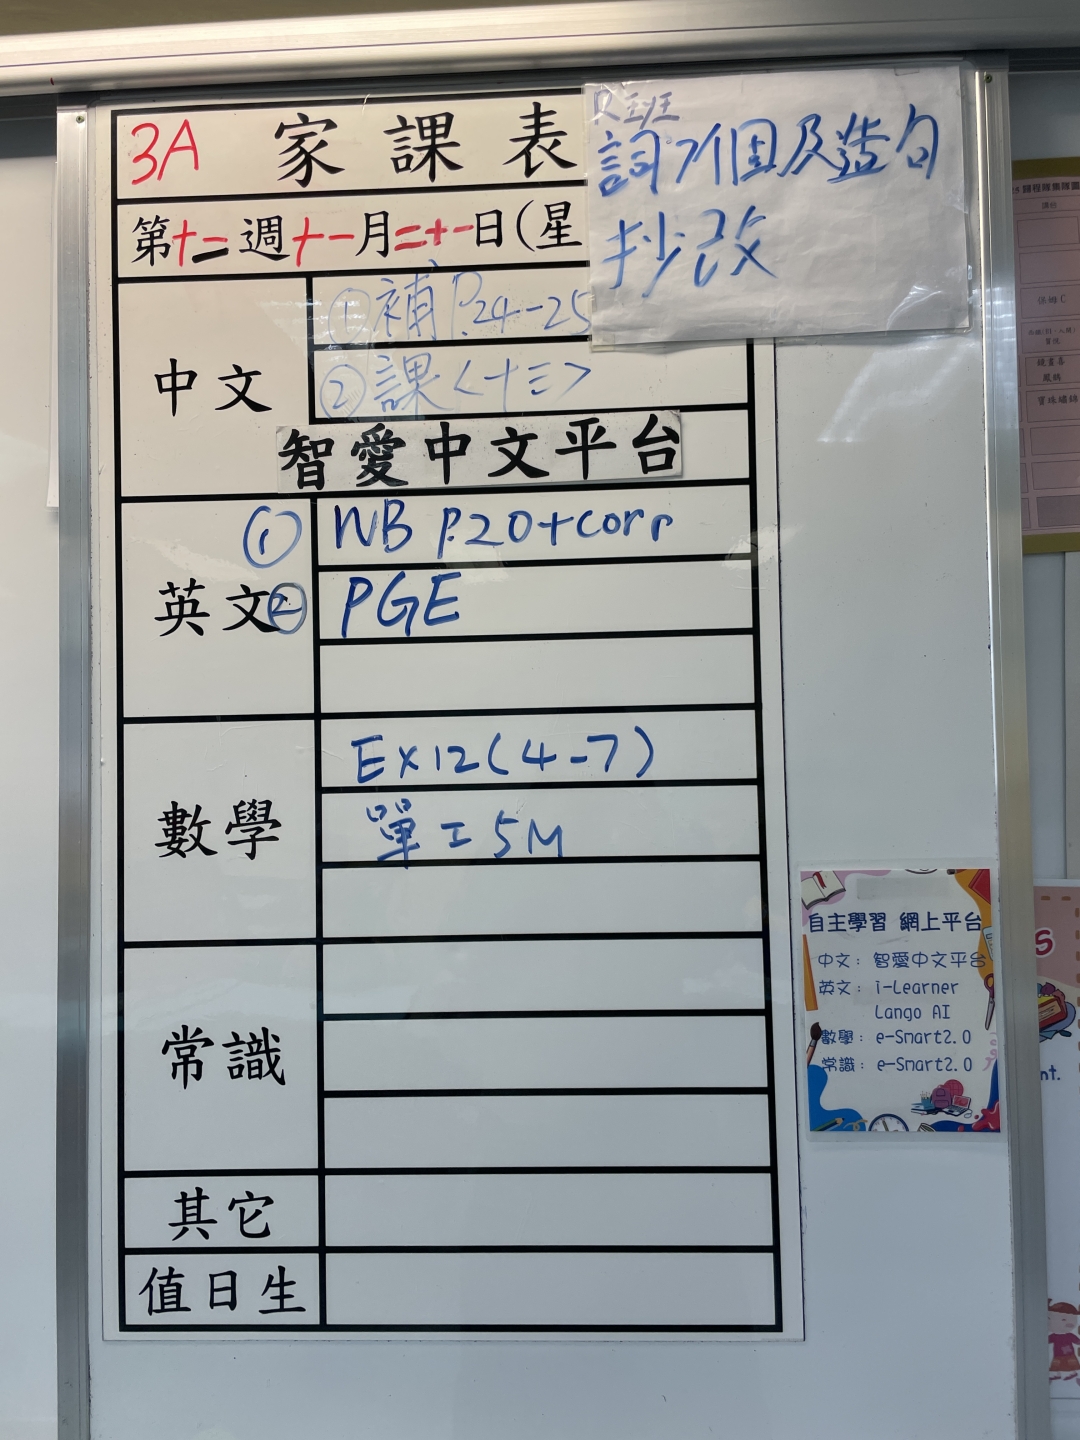 3A 家課表
第十二週十一月二十一日(星
R班
詞7個及造句
抄改
中文
①補P.24-25
②課<十三>
智愛中文平台
英文
① WB P.20+corr
② PGE
數學
Ex12(4-7)
單工5M
常識
其它
值日生
自主學習 網上平台
中文：智愛中文平台
英文：i-Learner
Lango AI
數學：e-Smart2.0
常識：e-Smart2.0
保姆C
nt.